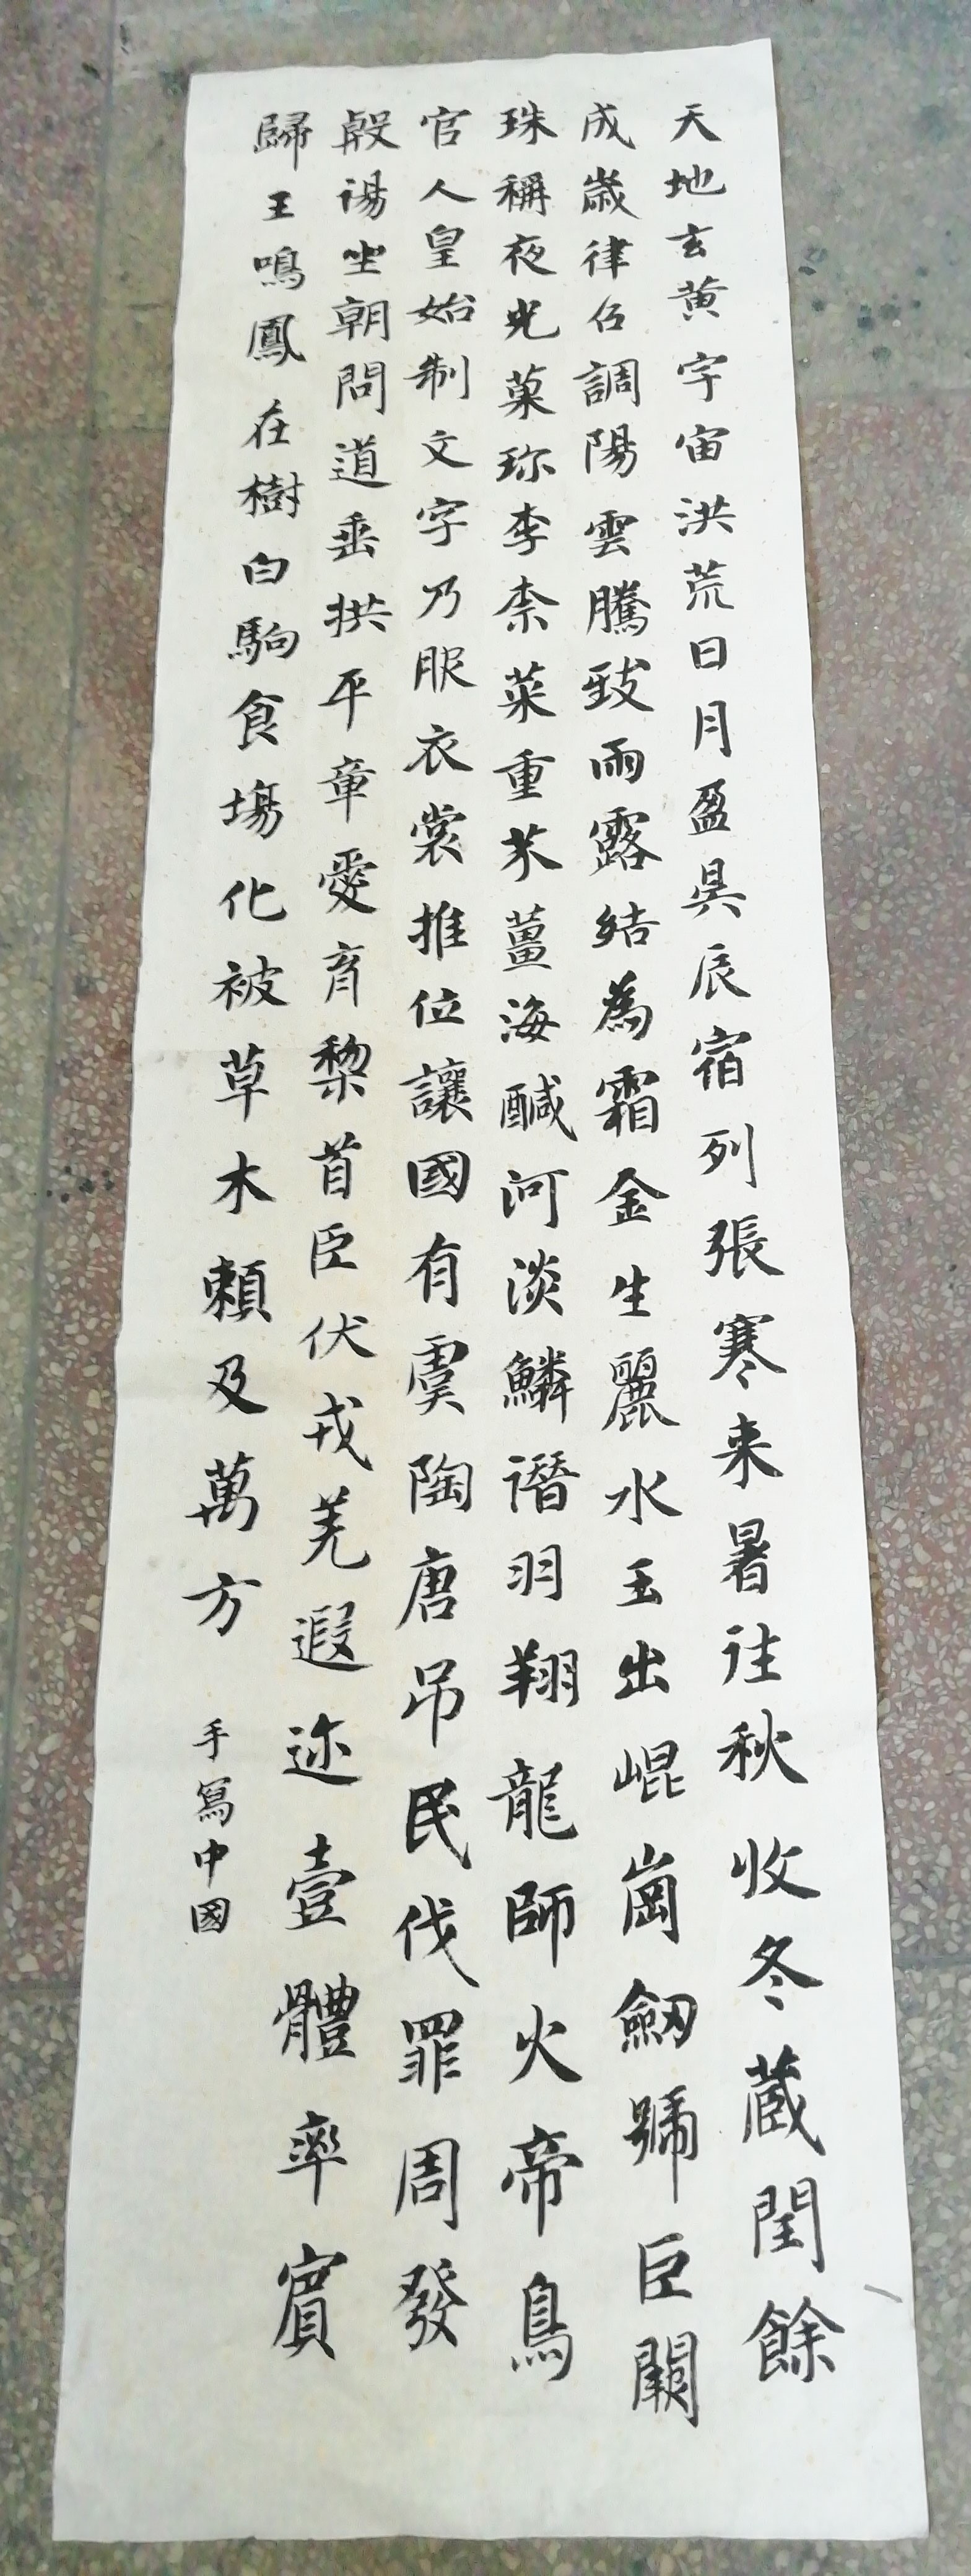 天地玄黄宇宙洪荒日月盈昃辰宿列張寒来暑往秋收冬蔵閏餘
成歲律召調陽雲騰致雨露結為霜金生麗水玉出崐崗劒號巨闕
珠稱夜光菓珎李柰菜重芥薑海醎河淡鱗潛羽翔龍師火帝鳥
官人皇始制文字乃服衣裳推位讓國有虞陶唐吊民伐罪周發
殷湯坐朝問道垂拱平章愛育黎首臣伏戎羌遐迩壹體率賓
歸王鳴鳳在樹白駒食場化被草木賴及萬方
手寫中國